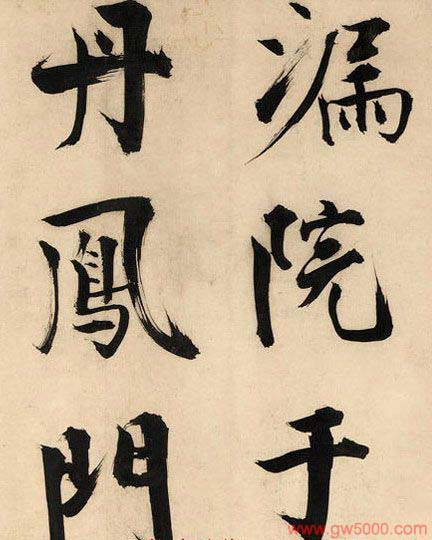 漏院于
丹鳳門
www.gw5000.com